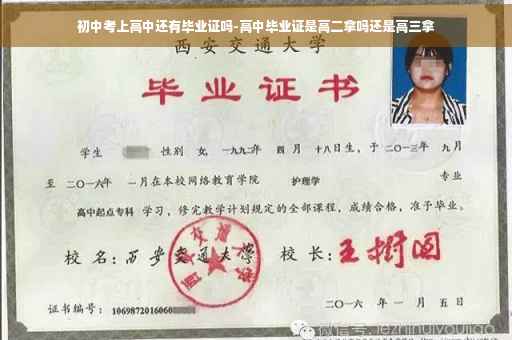 初中考上高中还有毕业证吗-高中毕业证是高二拿吗还是高三拿
西安交通大学
毕业证书
学生 性别 女, 一九九二年 四月 十八日生, 于 二〇一三年 九月
至 二〇一六年 一月在本校网络教育学院 护理学 专业
高中起点专科 学习, 修完教学计划规定的全部课程, 成绩合格, 准予毕业。
校名: 西安交通大学 校长: 王树国
西安交通大学
证书编号: 1069872016060
二〇一六年 一月 五日
微信号: jiezhinuiyoujiao